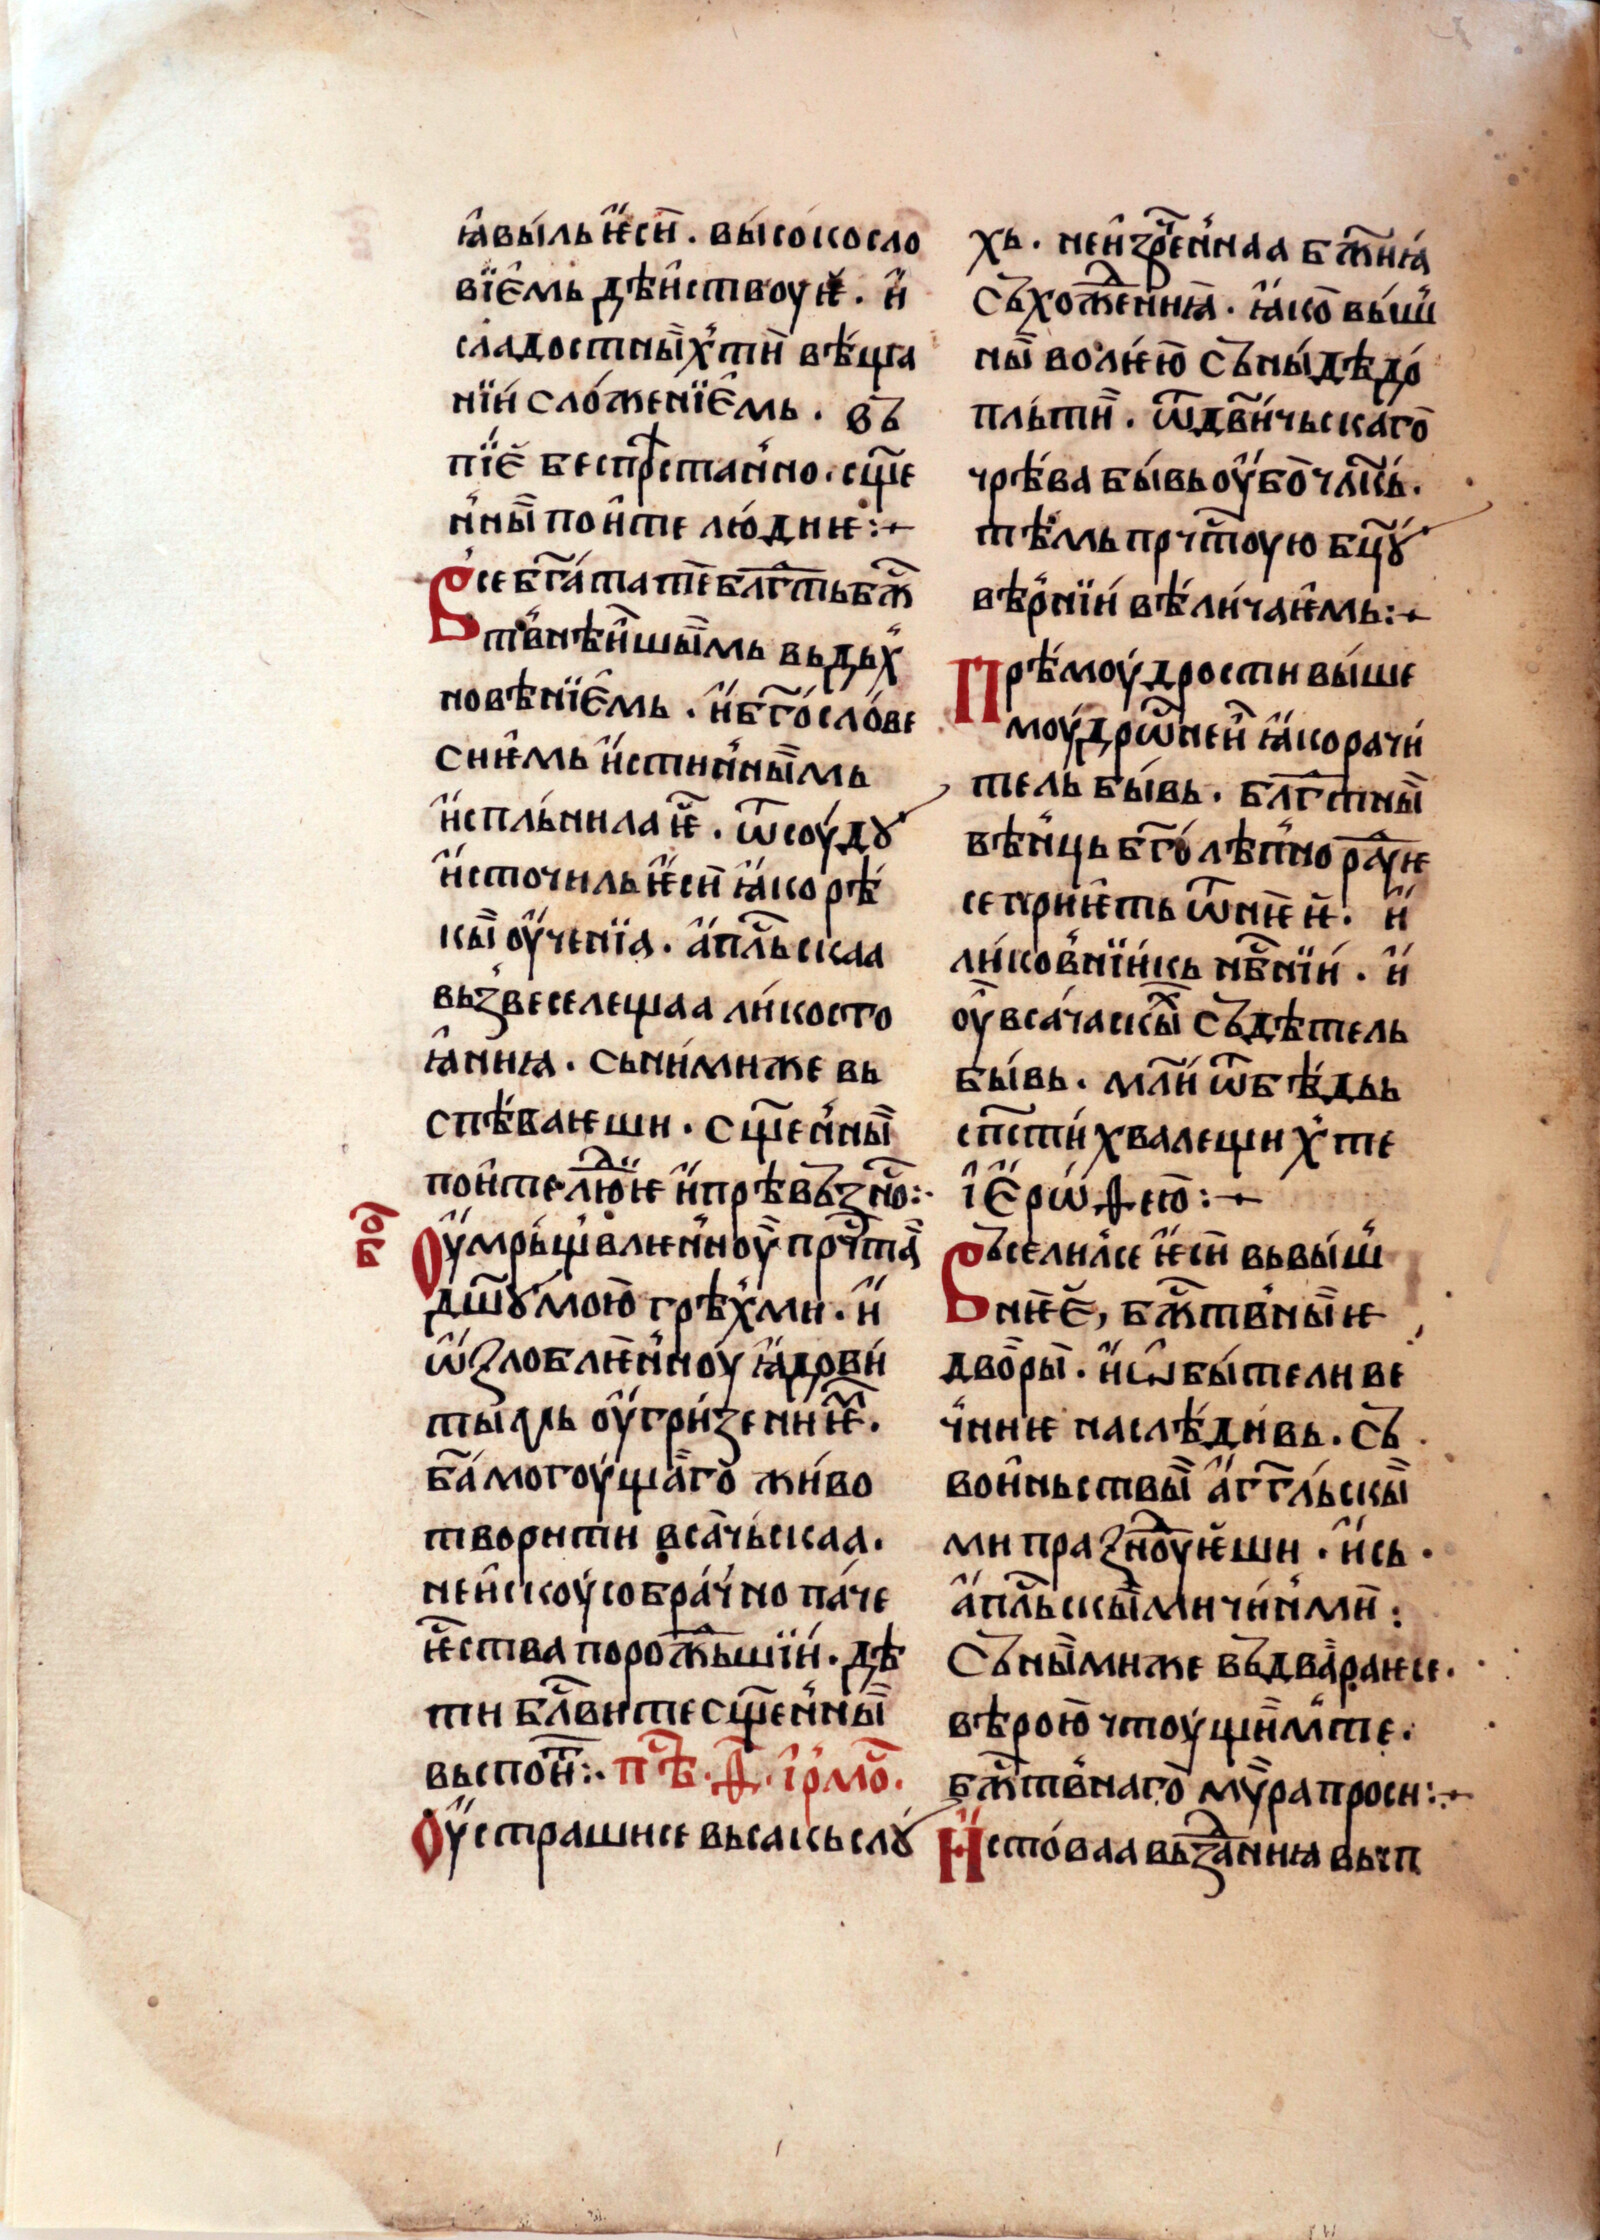 ꙗ҆вы́ль ѥ҆сѝ . вы́сокосло
вїе҆мь дѣ́иствоуѥ . и҆
сладостны́х ти̏ вѣ́ща
нїи сло́женїе҆мь . въ
пїе̏ беспрⷭ҇таньно . сщ҃е
нны̏ пои҆те лю́диѥ :~
Все бг҃а́та те блгⷣть бжⷭ҇
твнѣ́ишы̏мь вьдьх
новѣнїе҆мь . и҆ бг҃осло́ве
сиѥмь и҆стинны̏мь
и҆спльни́ла ѥ҆ . ѿсоу́дꙋ
и҆сточиль ѥ҆сѝ ꙗ҆ко рѣ́
кы̏ оу҆че́нїа . а҆пⷭ҇льскаа
вьзвеселещаа ли́косто
ꙗ҆ниꙗ . сьни́миже вь
спѣ́ваѥши . сщ҃е́нны̏
пои҆те лю́дїѥ и҆ прѣвъзно :·
Оу҆мрьщвлѥнноу̏ прⷱ҇та̏
дш҃ꙋ́ мою̏ грѣх́ми . и҆
ѡ҆ꙁлоблѥнноу ꙗ҆дови́
ты́мь оу҆гри́зениѥмь .
ба҃ могоу́ща̏го жи́во
творити вса́чьскаа .
неи҆скоу́собра́чно па́че
ѥ҆ства порожⷣьшїи . дѣ́
ти блⷭ҇вите сщ҃е́нны̏
вьспои҆те :· пѣⷭ҇ . ѳ҃ . і҆рмоⷭ҇ .
Оу҆страши́се вьсакь слꙋ́
хь . неи҆зрⷱ҇еннаа бж҃иꙗ
съхожⷣениꙗ̏ . ꙗ҆ко̏ вы́ш
ны̏ волѥю̏ съны́дѣ до́
пль́ти̏ . ѿ дв҃и́чьскаго̏
чрѣ́ва бы́вь оу҆бо̏ чл҃кь .
тѣ́мь прⷱ҇тоую бц҃ꙋ
вѣ́рнїи вѣ́личаи҆мь :~
Прѣ́моу́дрости вы́ше
моу́дрѡⷭ҇неи̏ ꙗ҆ко рачи́
тель бы́вь . блгⷣтны̏
вѣ́нць бг҃олѣ́пно раⷣуѥ
се прїиѥть ѿ нѥѥ̏ . и҆
ли́ковнїикь нбⷭ҇нїи . и҆
оу҆ вса́часкы̏х съдѣтель
бы́вь . мл҃и ѿ бѣ́дьь
сп҃сти́ хвалещи́х те
і҆е҆рѡ́ѳею̏ :~
Въсели́лсе ѥ҆сѝ вь вы́ш
ниѥ̏е , бжⷭ҇твны̏ѥ
дво̏ры̏ . и҆ ѡ҆бы́тели ве
чниѥ наслѣ́дивь . съ
вои҆ньствы̏ а҆гг҃льскы̏
ми празноуѥ҆ши . и҆ сь
а҆пⷭ҇льскы̏ми чи́нми̏ :
Съ ны̏миже въдва́раѥсе .
вѣ́рою̏ чтоущи̏м те .
бжⷭ҇твнаго̏ мѵ́ра проси :~
И҆сто́ваа вьзⷣаниꙗ вьсп